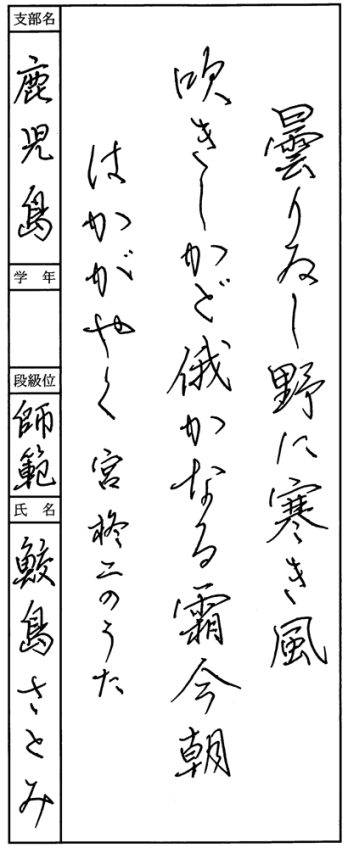 曇りゐし野に寒き風
吹きしかど俄かなる霜今朝
はかがやく 宮柊二のうた
支部名
鹿児島
学年
段級位
師範
氏名
鮫島さとみ